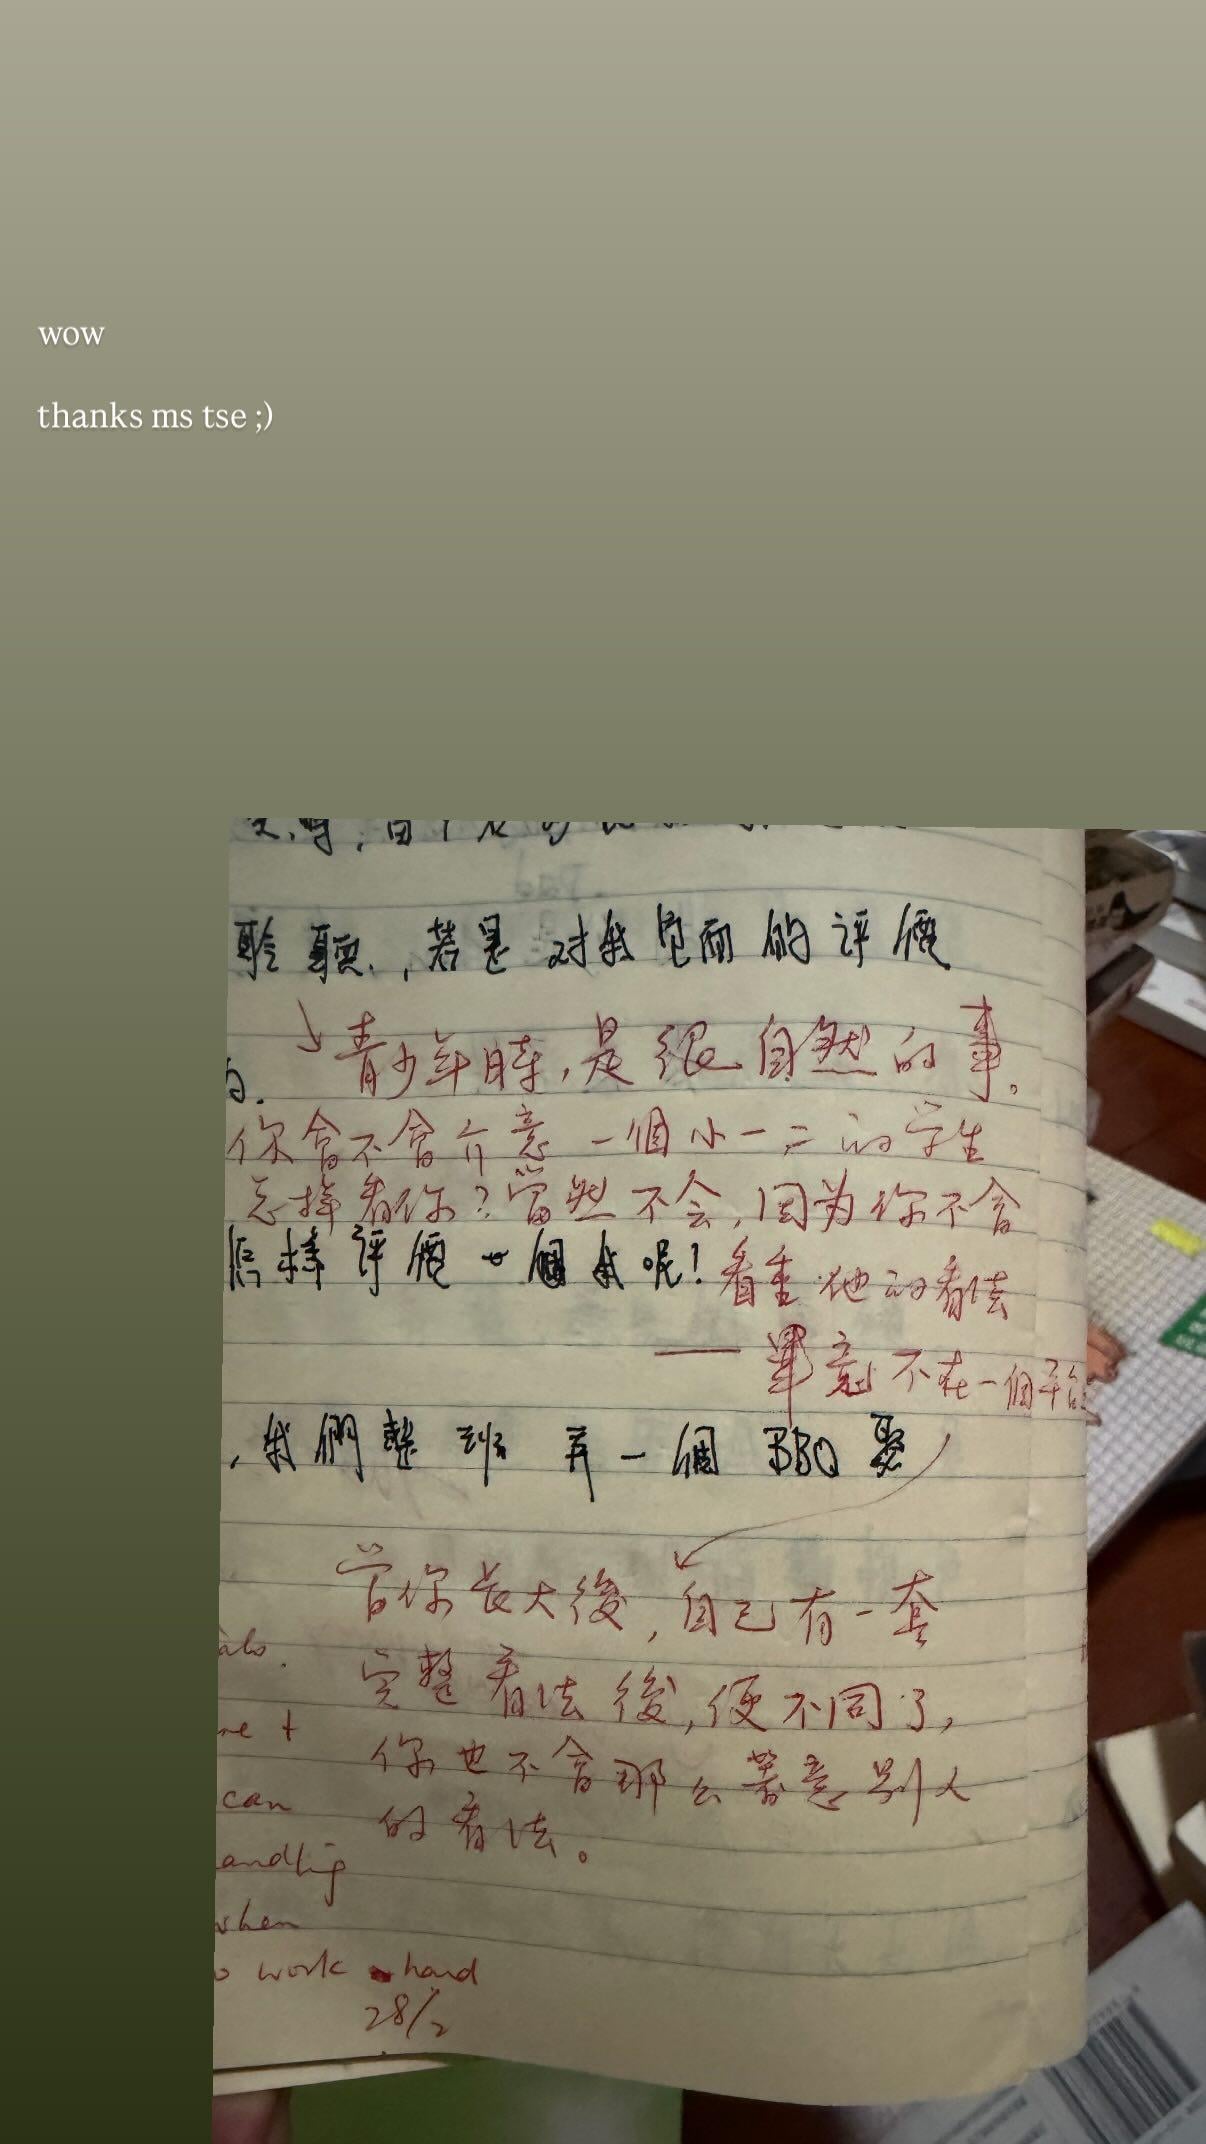 wow
thanks ms tse ;)
聆聽,若是對我負面的評價
青少年時,是很自然的事。
你會不會介意一個小一、二的学生
怎樣看你?當然不会,因为你不會
怎樣評價一個我呢!
看重他的看法
——畢竟不在一個平台
,我們整班弄一個BBQ聚
當你長大後,自己有一套
完整看法後,便不同了,
你也不會那么著意别人
的看法。
can
when
work hard
28/2